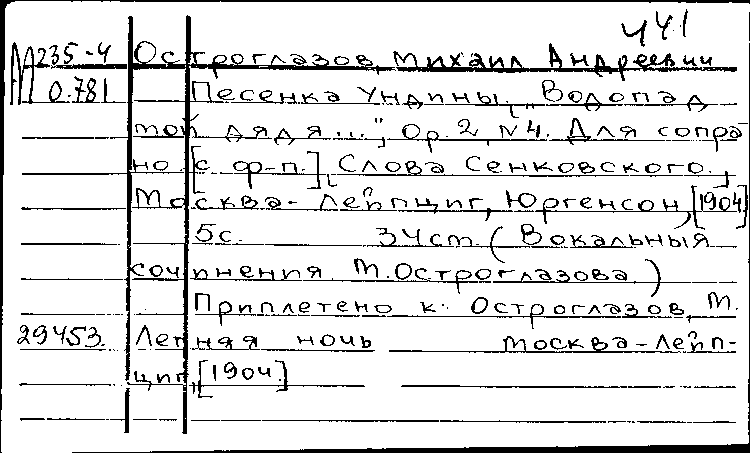 441
М 235-4 Остроглазов, Михаил Андреевич
0.781 Песенка Ундины, „Водопад
мой дядя...", Op. 2, N4. Для сопра-
но [с ф-п.], Слова Сенковского.,
Москва-Лейпциг, Юргенсон, [1904]
5с. 34ст. (Вокальныя
сочинения М. Остроглазова.)
Приплетено к: Остроглазов, М.
29453. Летняя ночь Москва-Лейп-
циг, [1904.]